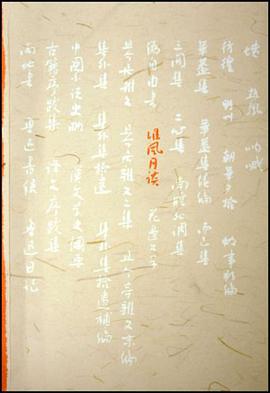 墳 热風 呐喊
彷徨 野草 朝華夕拾 故事新编
華蓋集 華蓋集续编 而已集
三闲集 二心集 南腔北调集
伪自由书 准风月谈 花边文学
且介亭杂文 且介亭杂文二集 且介亭杂文末编
集外集 集外集拾遗 集外集拾遗補编
中國小说史略 漢文学史纲要
古籍序跋集 译文序跋集
两地书 鲁迅书信 鲁迅日记